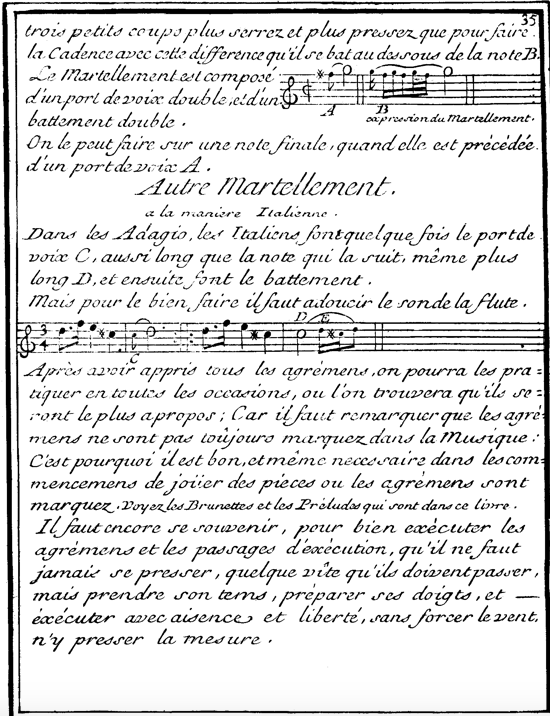 35
trois petits coups plus serrez et plus pressez que pour faire
la Cadence avec cette difference qu'il se bat au dessous de la note B.
Le Martellement est composé
d'un port de voix double, et d'un
battement double.
A B expression du Martellement.
On le peut faire sur une note finale, quand elle est précédée
d'un port de voix A.
Autre Martellement.
a la maniere Italienne.
Dans les Adagio, les Italiens font quelque fois le port de
voix C, aussi long que la note qui la suit, même plus
long D, et ensuite font le battement.
Mais pour le bien faire il faut adoucir le son de la flute.
D E
3
4
C
Après avoir appris tous les agrémens, on pourra les pra=
tiquer en toutes les occasions, ou l'on trouvera qu'ils se=
ront le plus apropos; Car il faut remarquer que les agré=
mens ne sont pas toûjours marquez dans la Musique:
C'est pourquoi il est bon, et même necessaire dans les com=
mencemens de joüer des pieces ou les agrémens sont
marquez. Voyez les Brunettes et les Préludes qui sont dans ce livre.
Il faut encore se souvenir, pour bien exècuter les
agrémens et les passages d'éxécution, qu'il ne faut
jamais se presser, quelque vîte qu'ils doivent passer,
mais prendre son tems, préparer ses doigts, et —
éxécuter avec aisence et liberté, sans forcer le vent,
n'y presser la mesure.